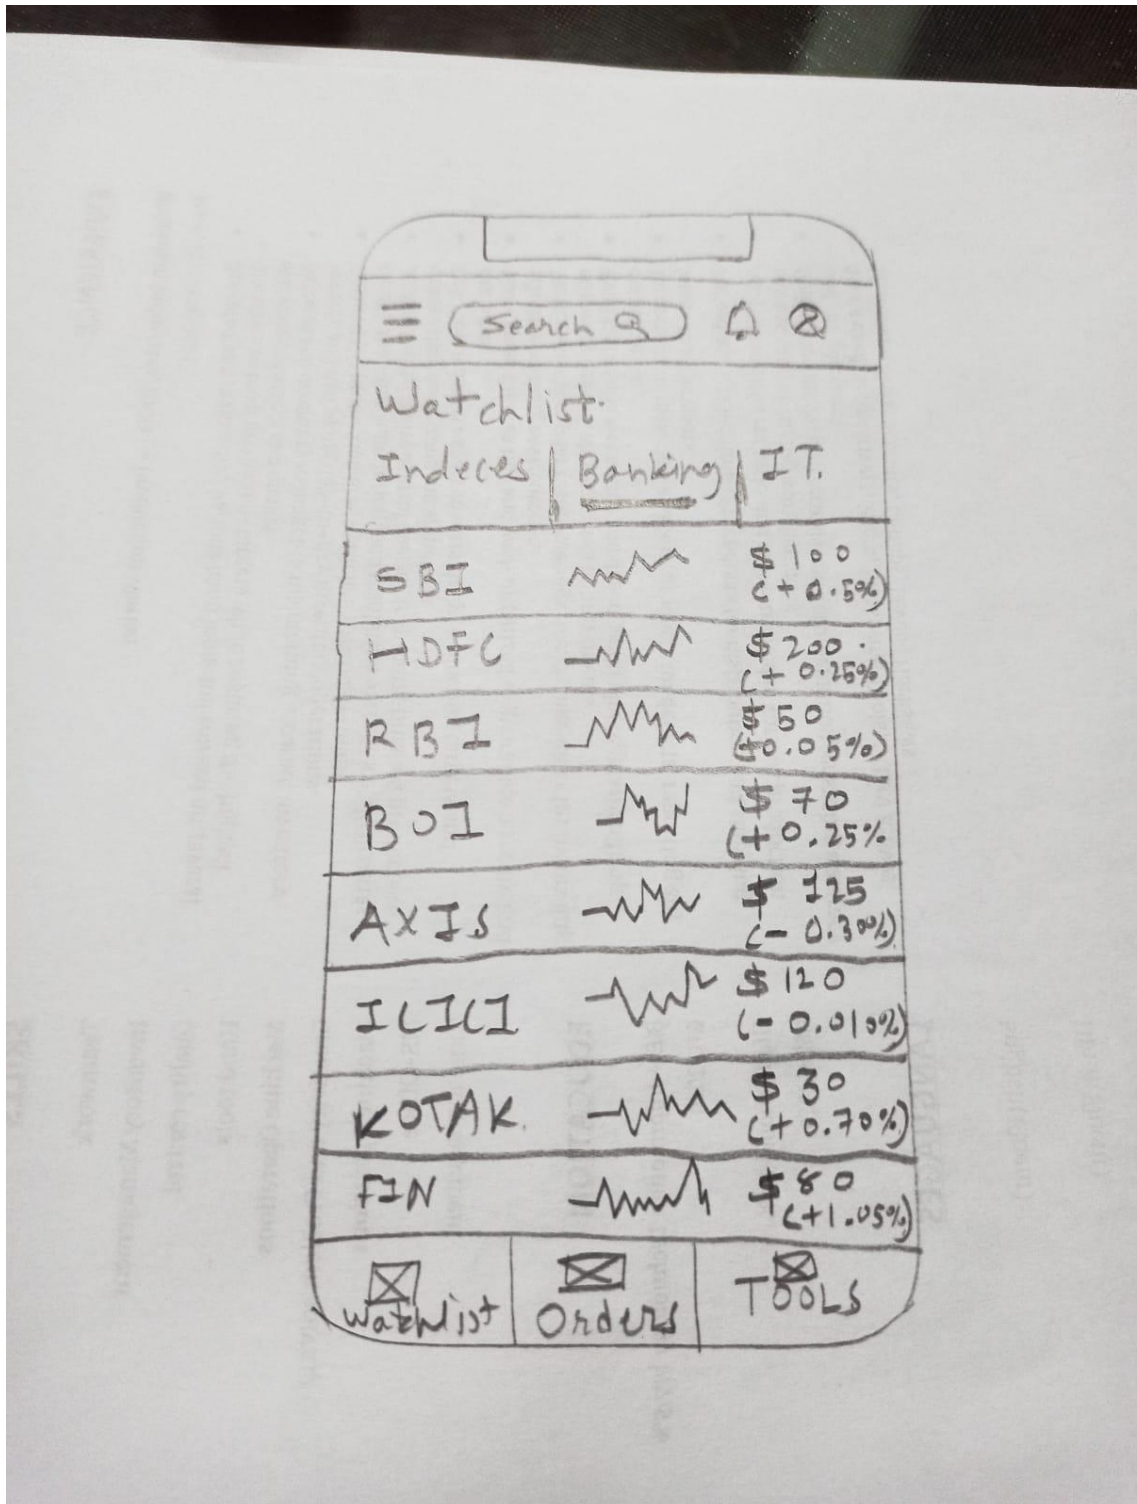 Search
Watchlist.
Indeces | Banking | IT.
SBI $100
(+0.5%)
HDFC $200.
(+0.25%)
RBI $50
(+0.05%)
BOI $70
(+0.25%
AXIS $125
(-0.30%)
ICICI $120
(-0.010%)
KOTAK. $30
(+0.70%)
FIN $80
(+1.05%)
Watchlist Orders TOOLS